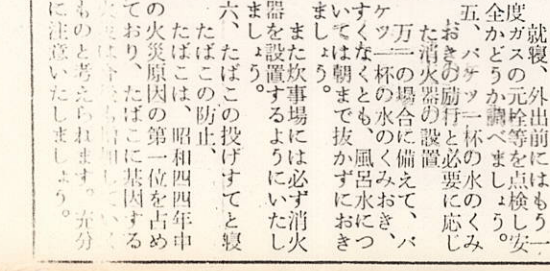 就寝、外出前にはもう一
度ガスの元栓等を点検し安
全かどうか調べましょう。
五、バケツ一杯の水のくみ
おきの励行と必要に応じ
た消火器の設置
万一の場合に備えて、バ
ケツ一杯の水のくみおき、
すくなくとも、風呂水につ
いては朝まで抜かずにおき
ましょう。
また炊事場には必ず消火
器を設置するようにいたし
ましょう。
六、たばこの投げすてと寝
たばこの防止、
たばこは、昭和四四年中
の火災原因の第一位を占め
ており、たばこに基因する
ものと考えられます。充分
に注意いたしましょう。